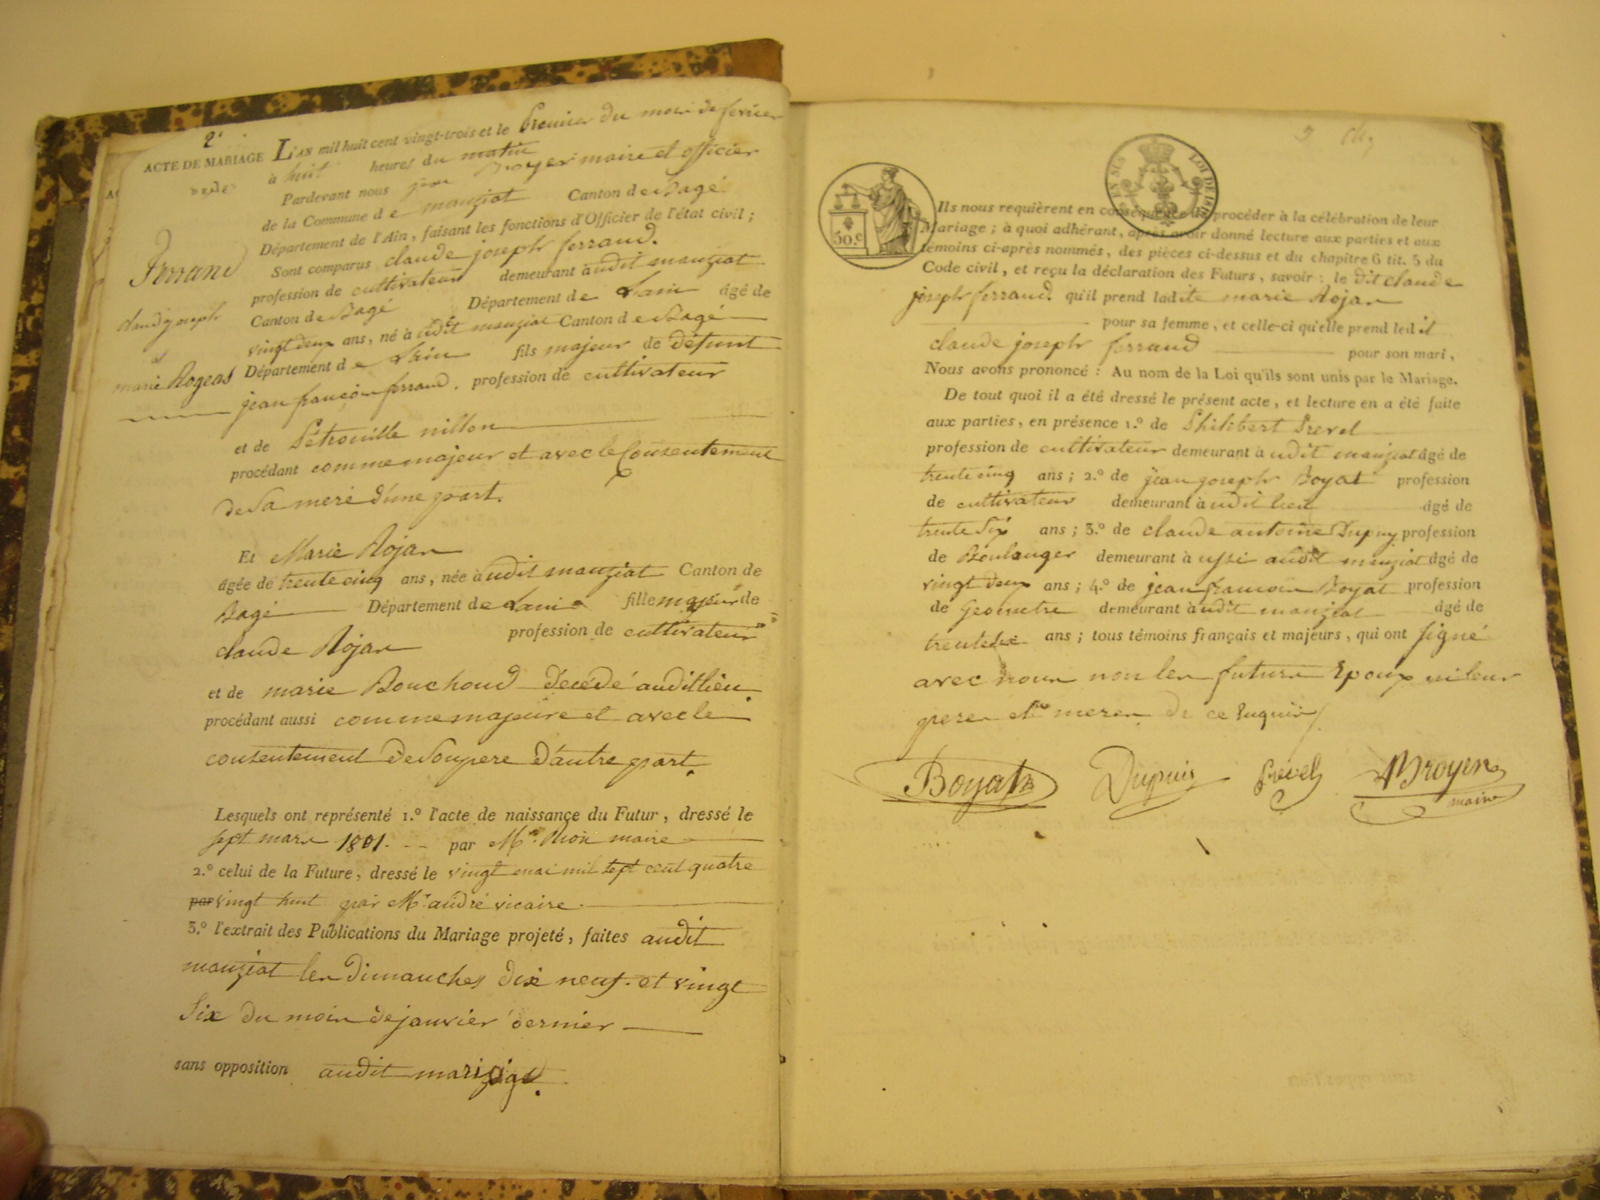 2e
ACTE DE MARIAGE
de
Ferrand
claude joseph
et
marie Rogeas
L'AN mil huit cent vingt-trois et le premier du mois de fevrier
à huit heures du matin
Pardevant nous Broyer maire et officier
de la Commune de manziat Canton de Bagé
Département de l'Ain, faisant les fonctions d'Officier de l'état civil;
Sont comparus claude joseph ferrand.
profession de cultivateur demeurant audit manziat
Canton de Bagé Département de Lain âgé de
vingt deux ans, né audit manziat Canton de Bagé
Département de Lain fils majeur de défunt
jean francois ferrand. profession de cultivateur
et de Pétronille nillon
procédant comme majeur et avec le Consentement
de Sa mere d'une part.
Et Marie Rojan
âgée de trente cinq ans, née audit manziat Canton de
Bagé Département de Lain fille majeur de
claude Rojan profession de cultivateur
et de marie Bouchoud décédé audit lieu
procédant aussi comme majeure et avec le
consentement de Son pere d'autre part.
Lesquels ont représenté 1.° l'acte de naissance du Futur, dressé le
sept mars 1801. par Mr. Rion maire
2.° celui de la Future, dressé le vingt mai mil sept cent quatre
par vingt huit par Mr andré vicaire.
3.° l'extrait des Publications du Mariage projeté, faites audit
manziat les Dimanches dix neuf et vingt
Six du mois de janvier dernier
sans opposition audit mariage.
50.c
LOI DE 1816
Ils nous requièrent en conséquence de procéder à la célébration de leur
Mariage; à quoi adhérant, après avoir donné lecture aux parties et aux
témoins ci-après nommés, des pièces ci-dessus et du chapitre 6 tit. 5 du
Code civil, et reçu la déclaration des Futurs, savoir: le dit claude
joseph ferrand. qu'il prend ladite marie Rojan
pour sa femme, et celle-ci qu'elle prend ledit
claude joseph ferrand pour son mari,
Nous avons prononcé: Au nom de la Loi qu'ils sont unis par le Mariage.
De tout quoi il a été dressé le présent acte, et lecture en a été faite
aux parties, en présence 1.° de Philibert Prevel
profession de cultivateur demeurant audit manziat âgé de
trente cinq ans; 2.° de jean joseph Boyat profession
de cultivateur demeurant audit lieu âgé de
trente Six ans; 3.° de claude antoine Dupuy profession
de Boulanger demeurant aussi audit manziat âgé de
vingt deux ans; 4.° de jean francois Boyat profession
de Geometre demeurant audit manziat âgé de
trente six ans; tous témoins français et majeurs, qui ont signé
avec nous non les futurs Epoux ni leur
peres et meres de ce Enquis
Boyat Dupuis Prevel Broyer
maire